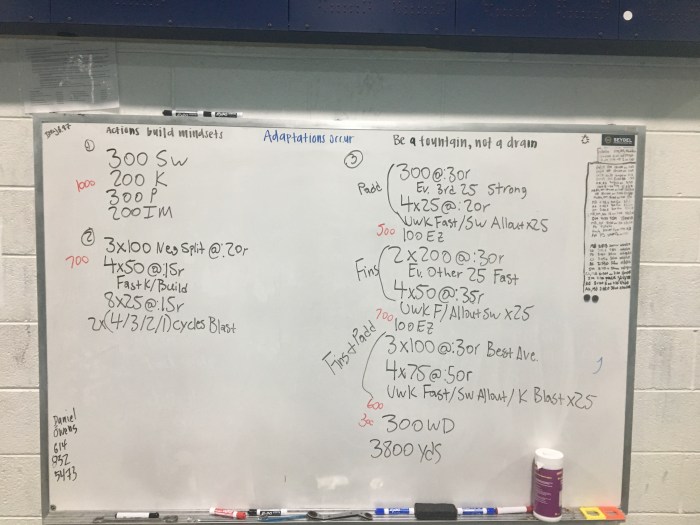 Actions build mindsets
Adaptations occur
Be a fountain, not a drain
①
300 SW
200 K
1000
300 P
200 IM
②
3x100 Neg Split @:20r
700
4x50 @:15r
Fast K/Build
8x25 @:15r
2x(4/3/2/1) Cycles Blast
③
Padd
300 @:30r
Ev. 3rd 25 Strong
4x25 @:20r
UWK Fast/SW Allout x25
500
100 EZ
Fins
2x200 @:30r
Ev. Other 25 Fast
4x50 @:35r
UWK F/Allout SW x25
700
100 EZ
Fins+Padd
3x100 @:30r Best Ave.
4x75 @:50r
UWK Fast/SW Allout/K Blast x25
600
300
300 WD
3800 yds
Daniel
Owens
614
832
5473
EXPO